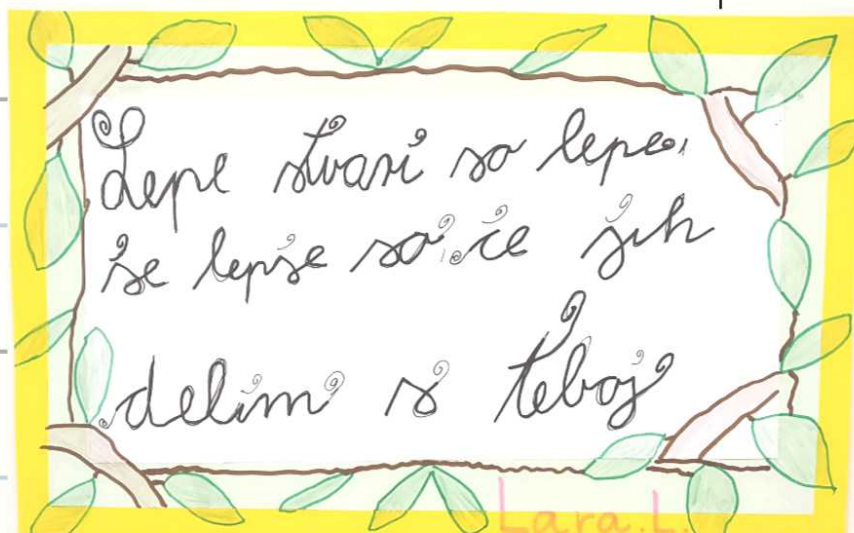 Lepe stvari so lepe,
še lepše so, če jih
delim s teboj
Lara. L.